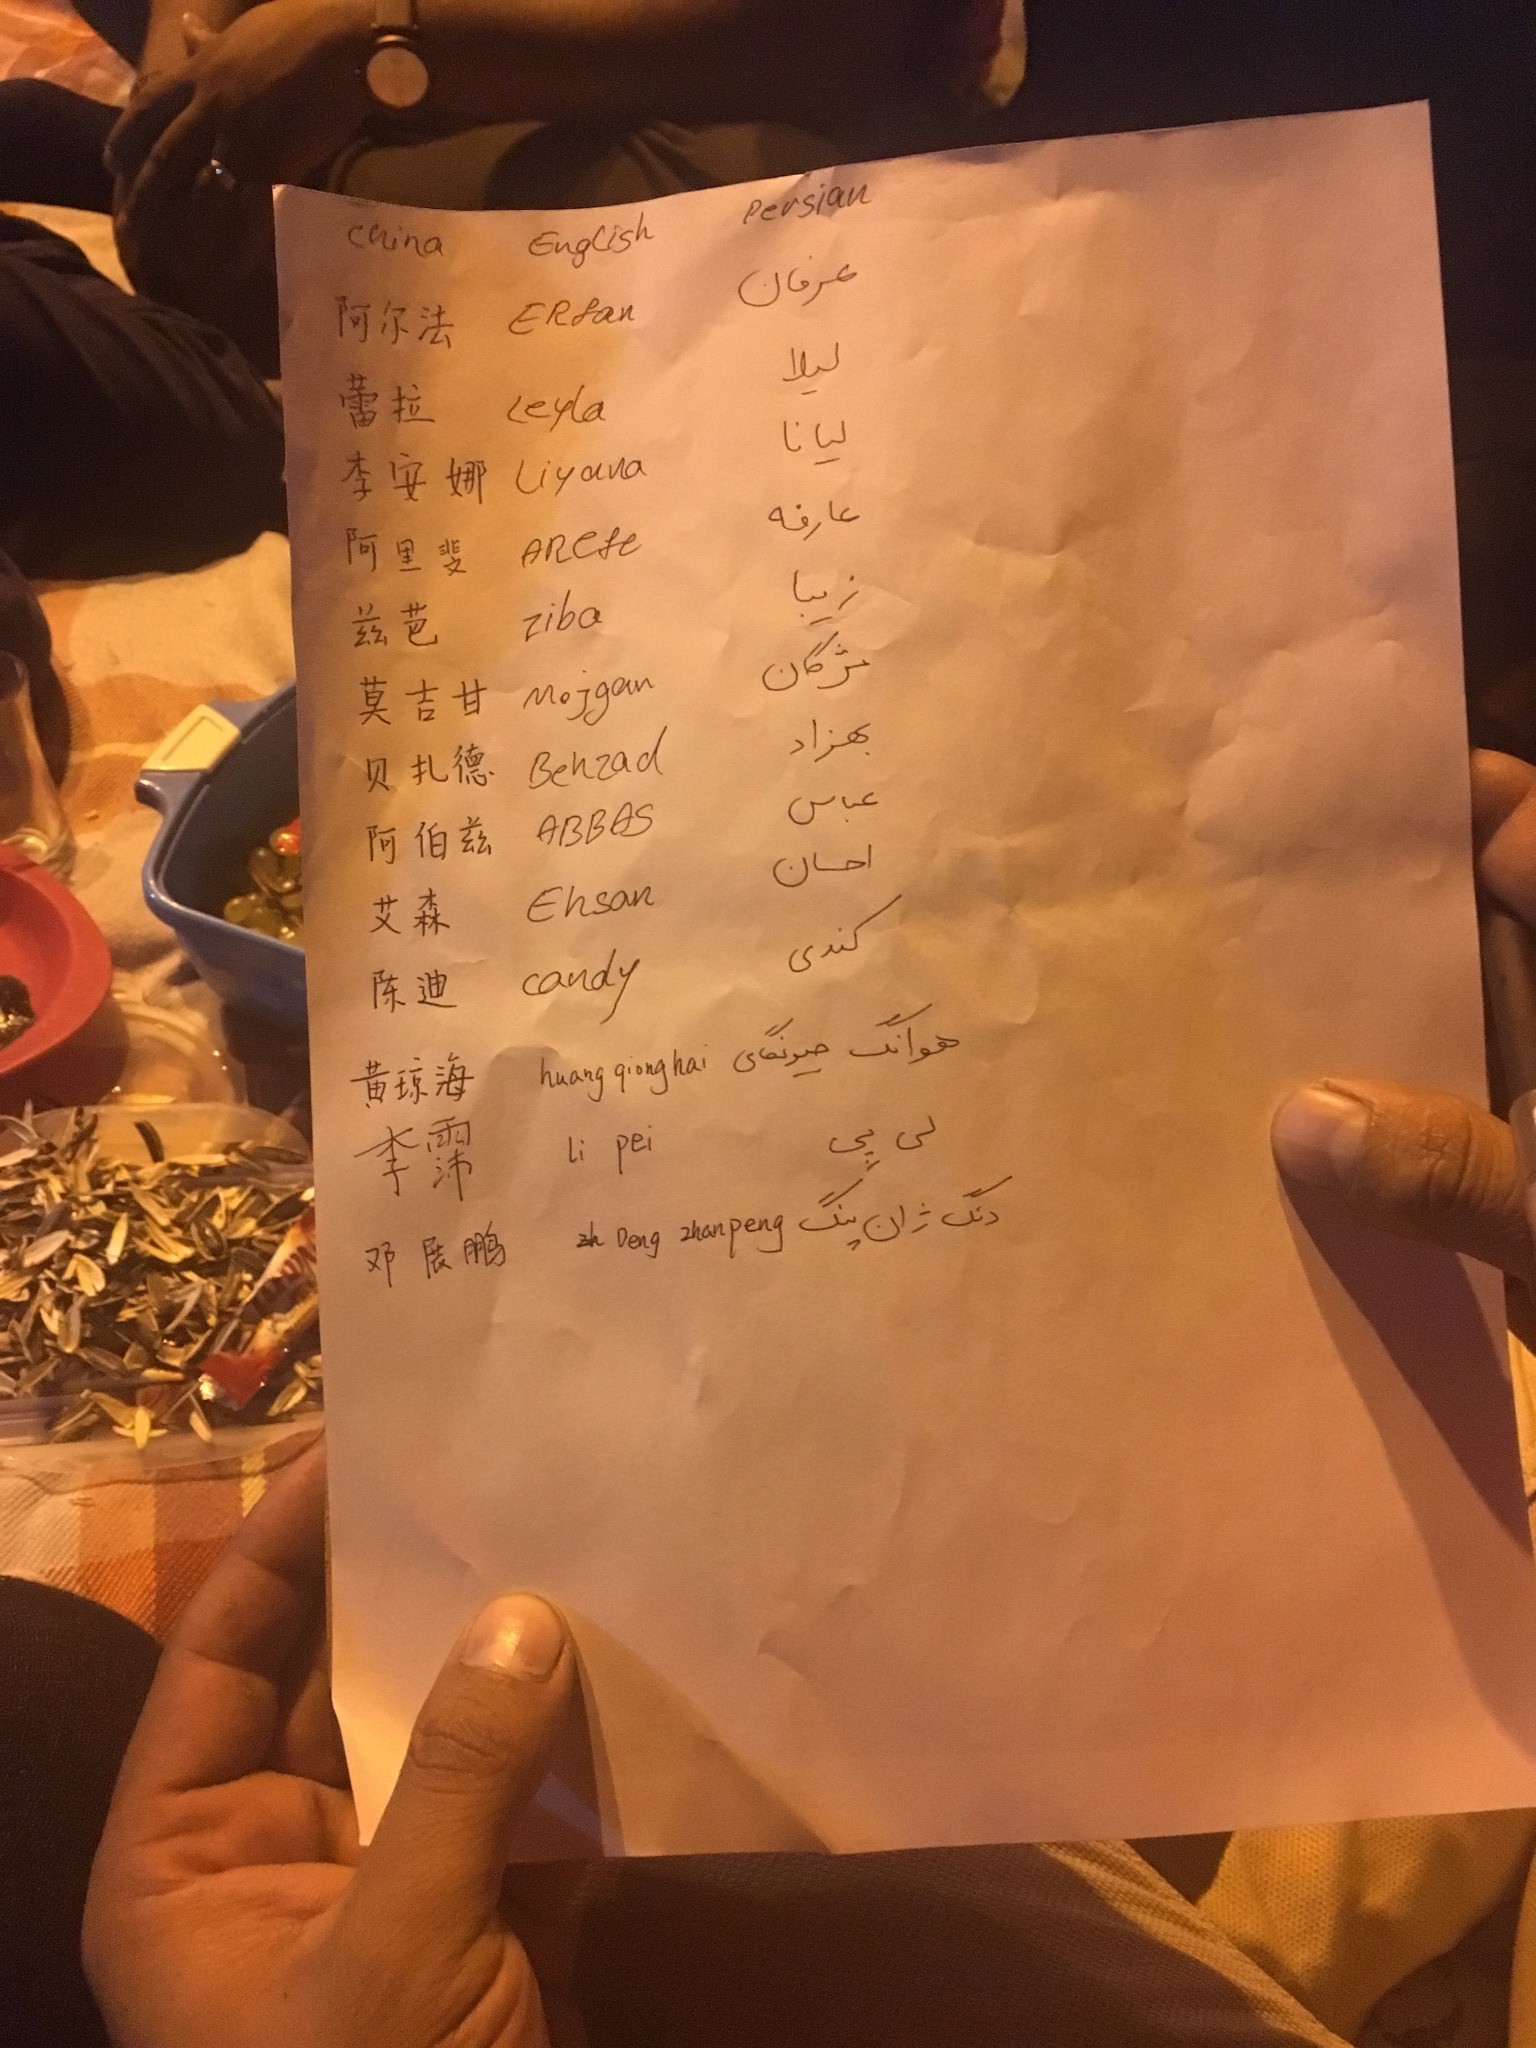 China English Persian
阿尔法 ERfan عرفان
蕾拉 Leyla لیلا
李安娜 Liyana لیانا
阿里斐 AREfe عارفه
兹芭 ziba زیبا
莫吉甘 Mojgan مژگان
贝扎德 Behzad بهزاد
阿伯兹 ABBAS عباس
艾森 Ehsan احسان
陈迪 candy کندی
黄琼海 huang qionghai هوانگ چیونگهای
李霈 li pei لی پی
邓展鹏 Deng zhanpeng دنگ ژان پنگ